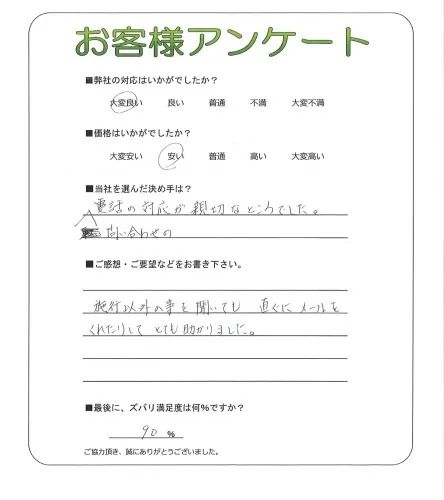 お客様アンケート
■弊社の対応はいかがでしたか？
大変良い 良い 普通 不満 大変不満
■価格はいかがでしたか？
大変安い 安い 普通 高い 大変高い
■当社を選んだ決め手は？
電話の対応が親切なところでした。
問い合わせの
■ご感想・ご要望などをお書き下さい。
施行以外の事を聞いても 直ぐにメールを
くれたりして とても助かりました。
■最後に、ズバリ満足度は何％ですか？
90 ％
ご協力頂き、誠にありがとうございました。